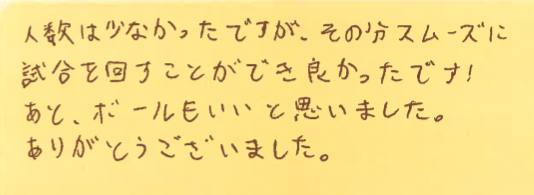 人数は少なかったですが、その分スムーズに
試合を回すことができ良かったです!
あと、ボールもいいと思いました。
ありがとうございました。